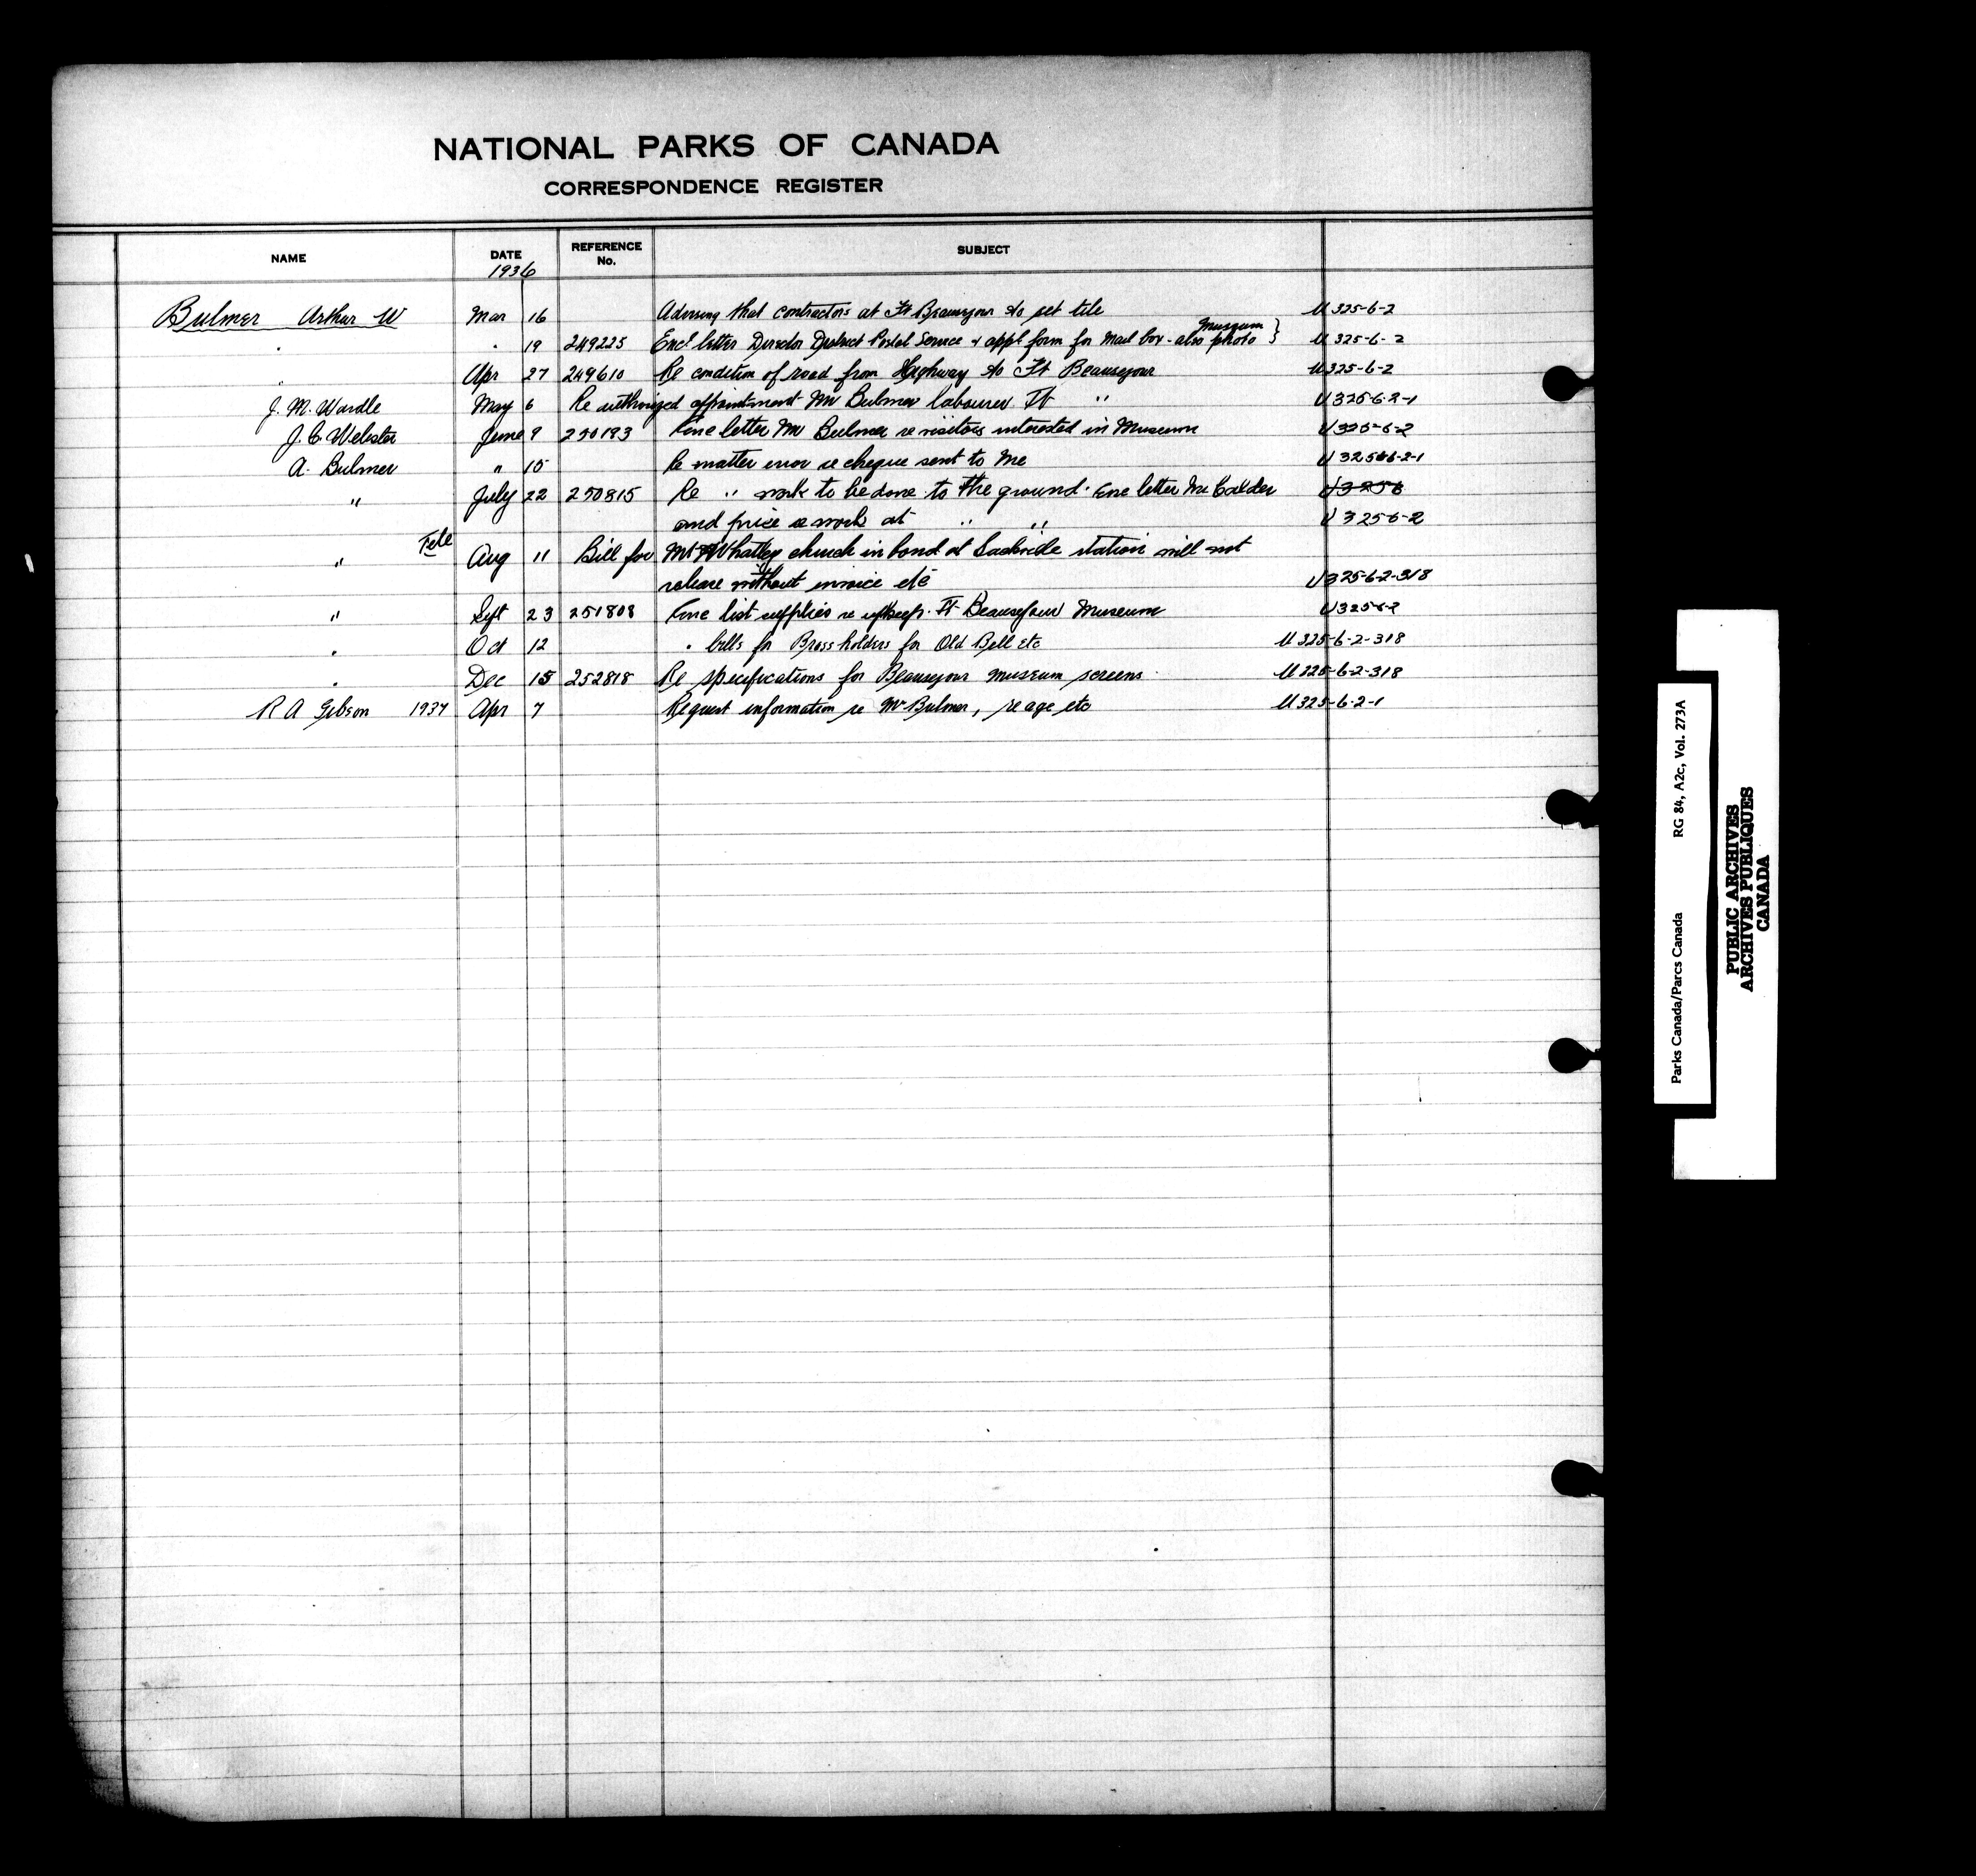 NATIONAL PARKS OF CANADA
CORRESPONDENCE REGISTER
NAME DATE REFERENCE No. SUBJECT
1936
Bulmer Arthur W Mar 16 Advising that contractors at Ft Beausejour to set tile U 325-6-2
" " 19 249225 Encl letter Director District Postal Service + appl form for Mail box - also Museum photo } U 325-6-2
" Apr 27 249610 Re condition of road from Highway to Ft Beausejour U 325-6-2
J. M. Wardle May 6 Re authorized appointment Mr Bulmer labourer Ft " U 325-6-2-1
J. C. Webster June 9 250193 Enc letter Mr Bulmer re visitors interested in Museum U 325-6-2
A. Bulmer " 15 Re matter error re cheque sent to me U 325-6-2-1
" July 22 250815 Re " work to be done to the ground. Enc letter Mr Calder U 3256
and price re work at " " U 325-6-2
" Tele Aug 11 Bill for Mt Whatley church in bond at Sackville station will not
release without invoice etc U 325-6-2-318
" Sept 23 251808 Enc list supplies re upkeep. Ft Beausejour Museum U 325-6-2
" Oct 12 " bills for Brass holders for Old Bell etc U 325-6-2-318
" Dec 15 252818 Re specifications for Beausejour Museum screens U 325-6-2-318
R A Gibson 1937 Apr 7 Request information re Mr Bulmer, re age etc U 325-6-2-1
Parks Canada/Parcs Canada RG 84, A2c, Vol. 273A
PUBLIC ARCHIVES
ARCHIVES PUBLIQUES
CANADA